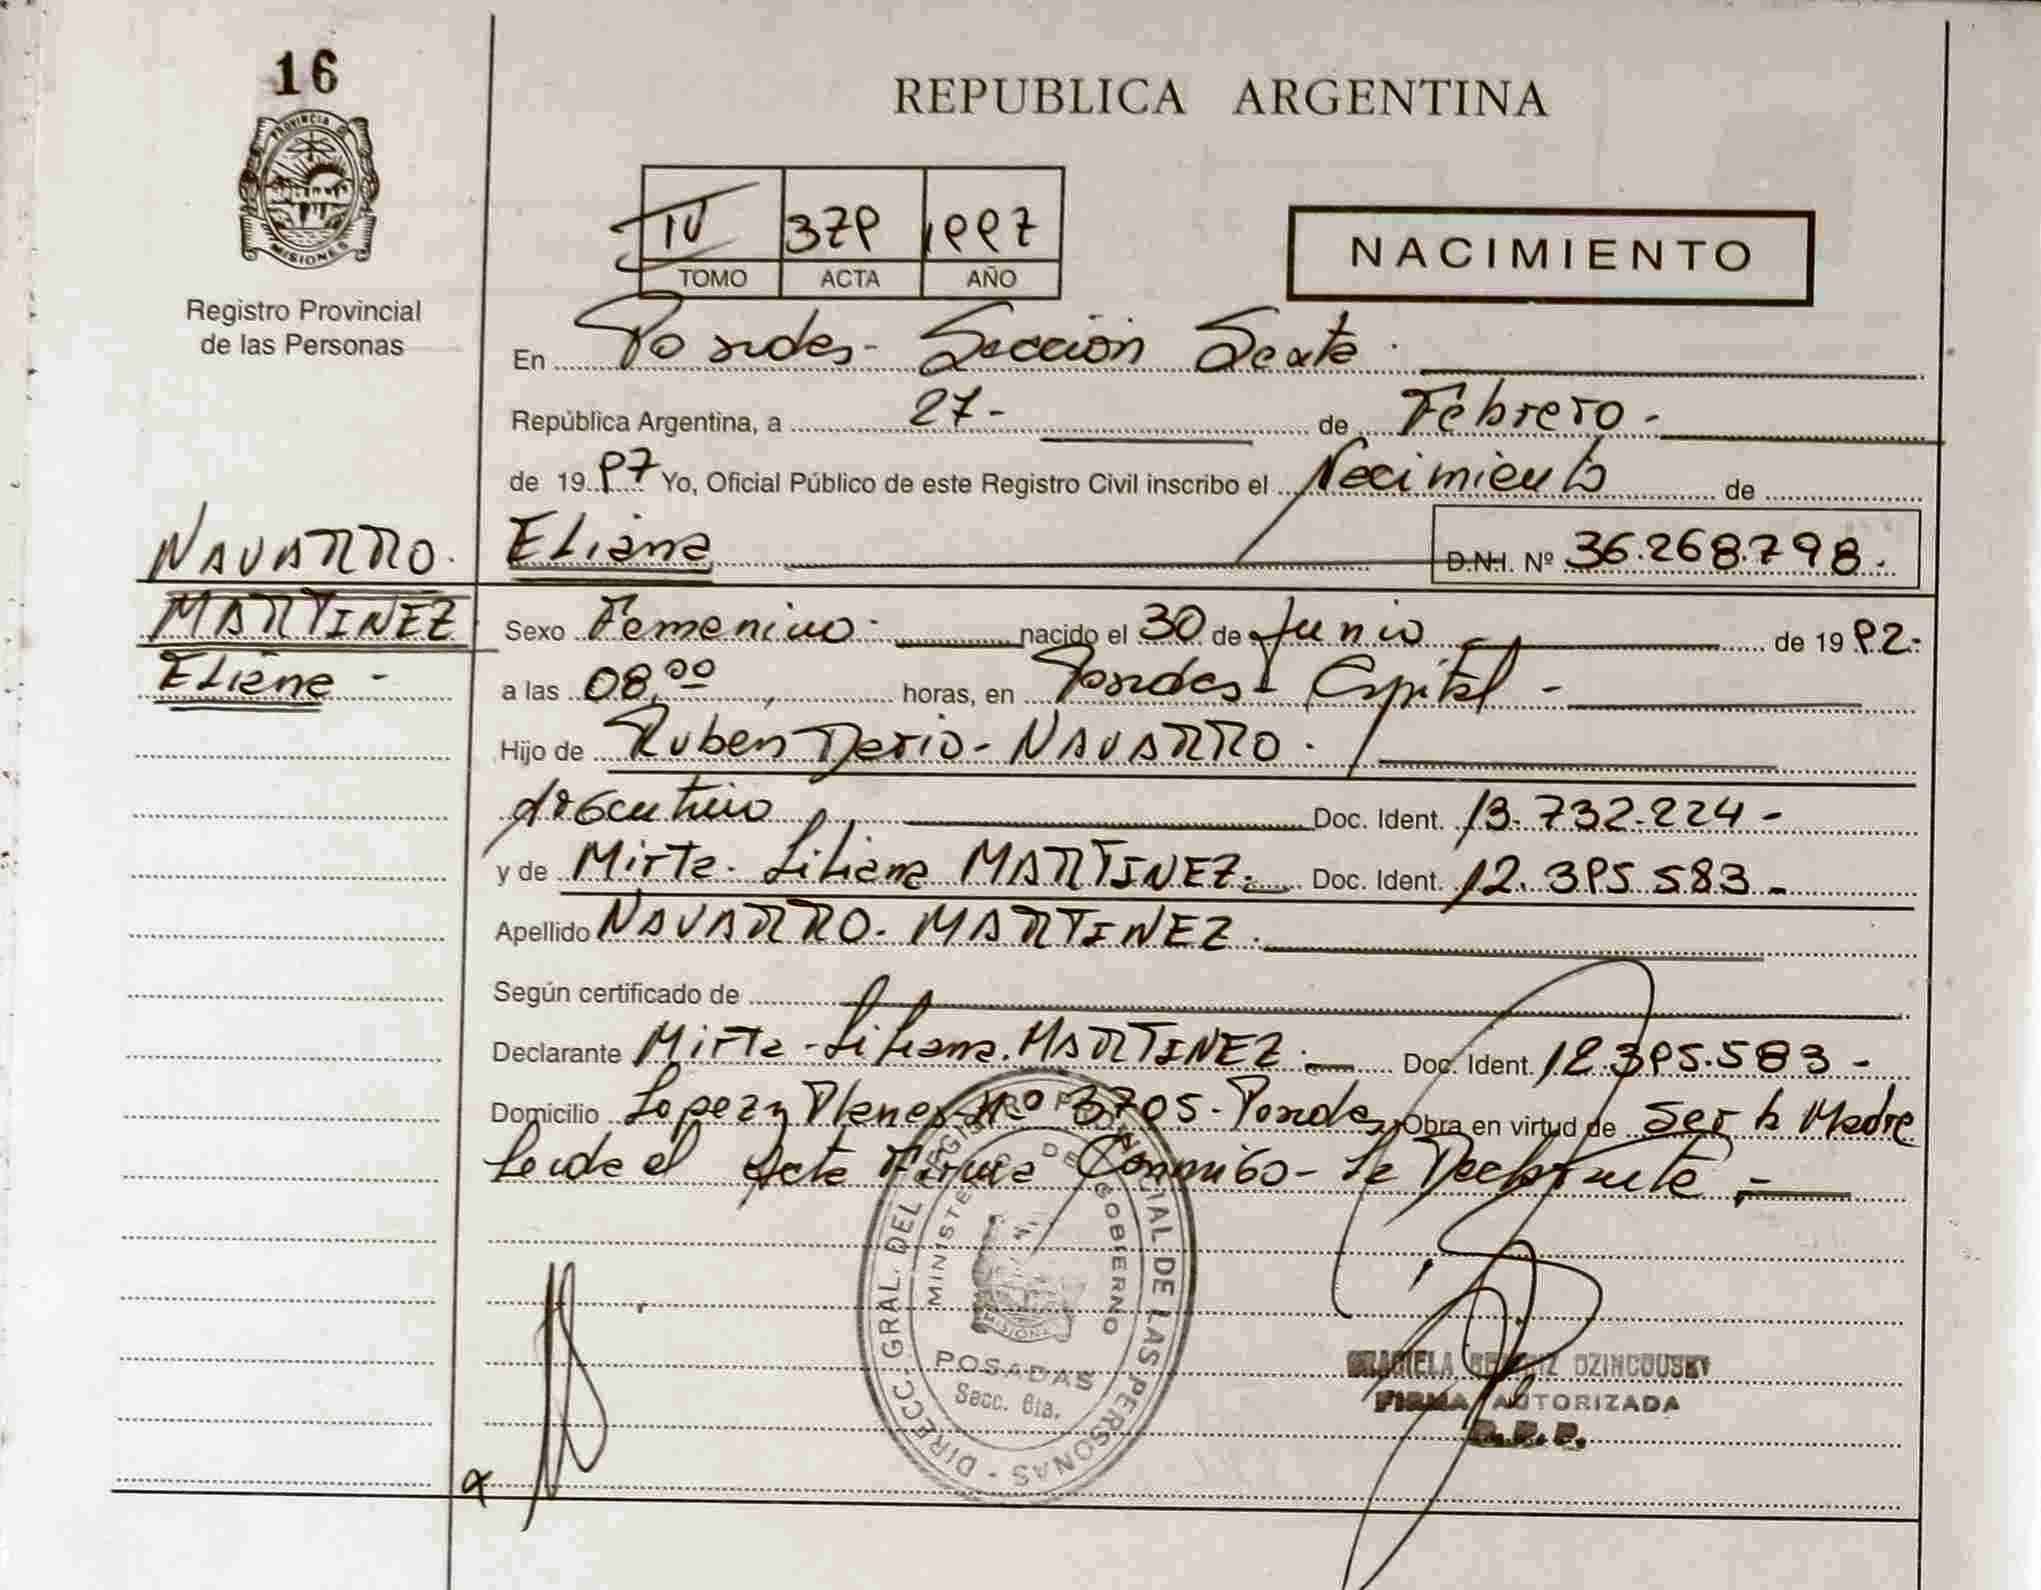 16
PROVINCIA DE
MISIONES
Registro Provincial
de las Personas
REPUBLICA ARGENTINA
IV 379 1997
TOMO ACTA AÑO
NACIMIENTO
En Posadas - Sección Sexta.
República Argentina, a 27- de Febrero -
de 1997 Yo, Oficial Público de este Registro Civil inscribo el Nacimiento de
NAVARRO. Eliana D.N.I. Nº 36.268.798.
MARTINEZ Sexo Femenino. nacido el 30 de Junio de 1992.
Eliana - a las 08,00 horas, en Posadas - Capital -
Hijo de Ruben Dario - NAVARRO.
Doc. Ident. 13.732.224 -
y de Mirta - Liliana MARTINEZ. Doc. Ident. 12.395.583 -
Apellido NAVARRO - MARTINEZ.
Según certificado de
Declarante Mirta - Liliana MARTINEZ. Doc. Ident. 12.395.583 -
Domicilio Lopez y Planes Nº 3705 - Posadas Obra en virtud de ser la Madre
Leida el Acta Firma Conmigo - La Declarante.
DIRECC. GRAL. DEL REGISTRO PROVINCIAL DE LAS PERSONAS -
MINISTERIO DE GOBIERNO
MISIONES
POSADAS
Secc. 6ta.
GRACIELA BEATRIZ DZINCOUSKY
FIRMA AUTORIZADA